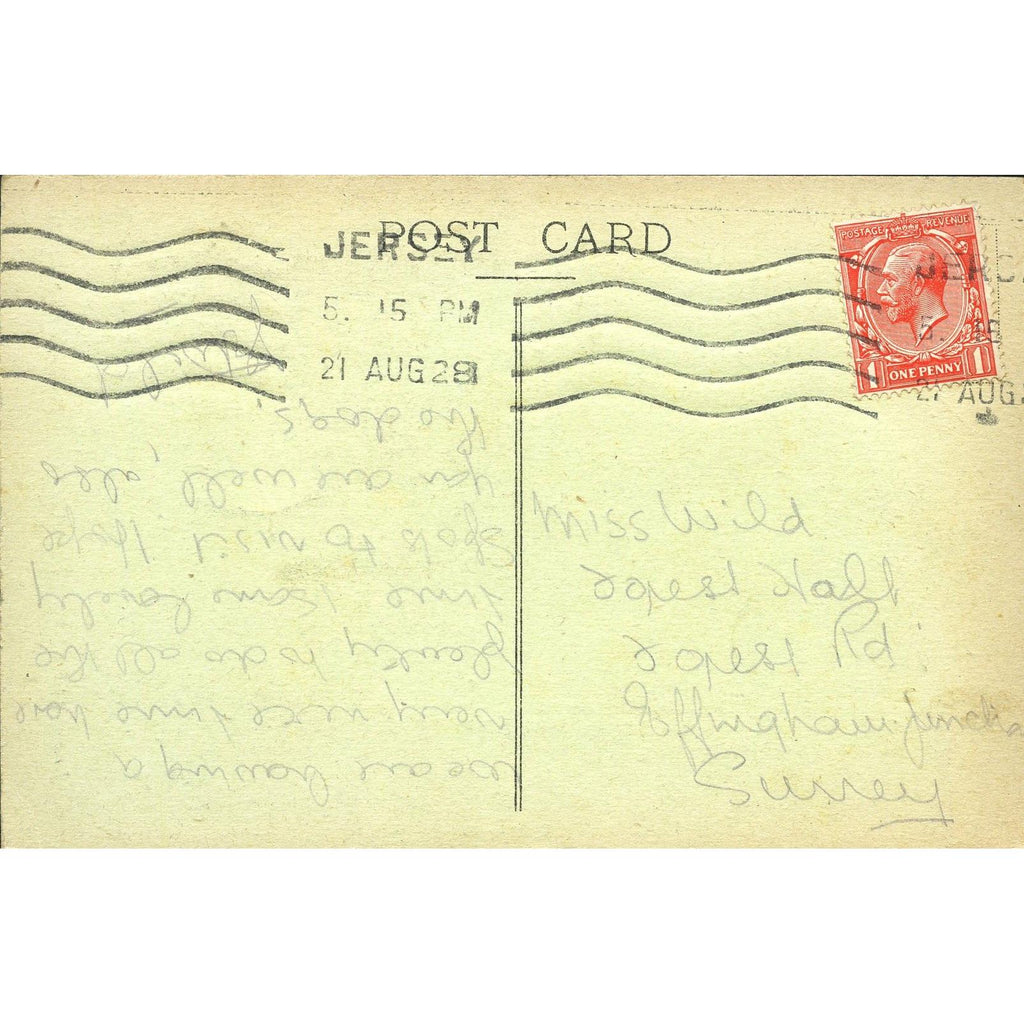 POST CARD
JERSEY
5. 15 PM
21 AUG 28
POSTAGE REVENUE
1 ONE PENNY 1
21 AUG
we are having a
very nice time have
plenty to do all the
time & some lovely
spots to visit I hope
you are well, also
the dogs.
Miss Wild
Forest Hall
Forest Rd.
Effingham Junction
Surrey